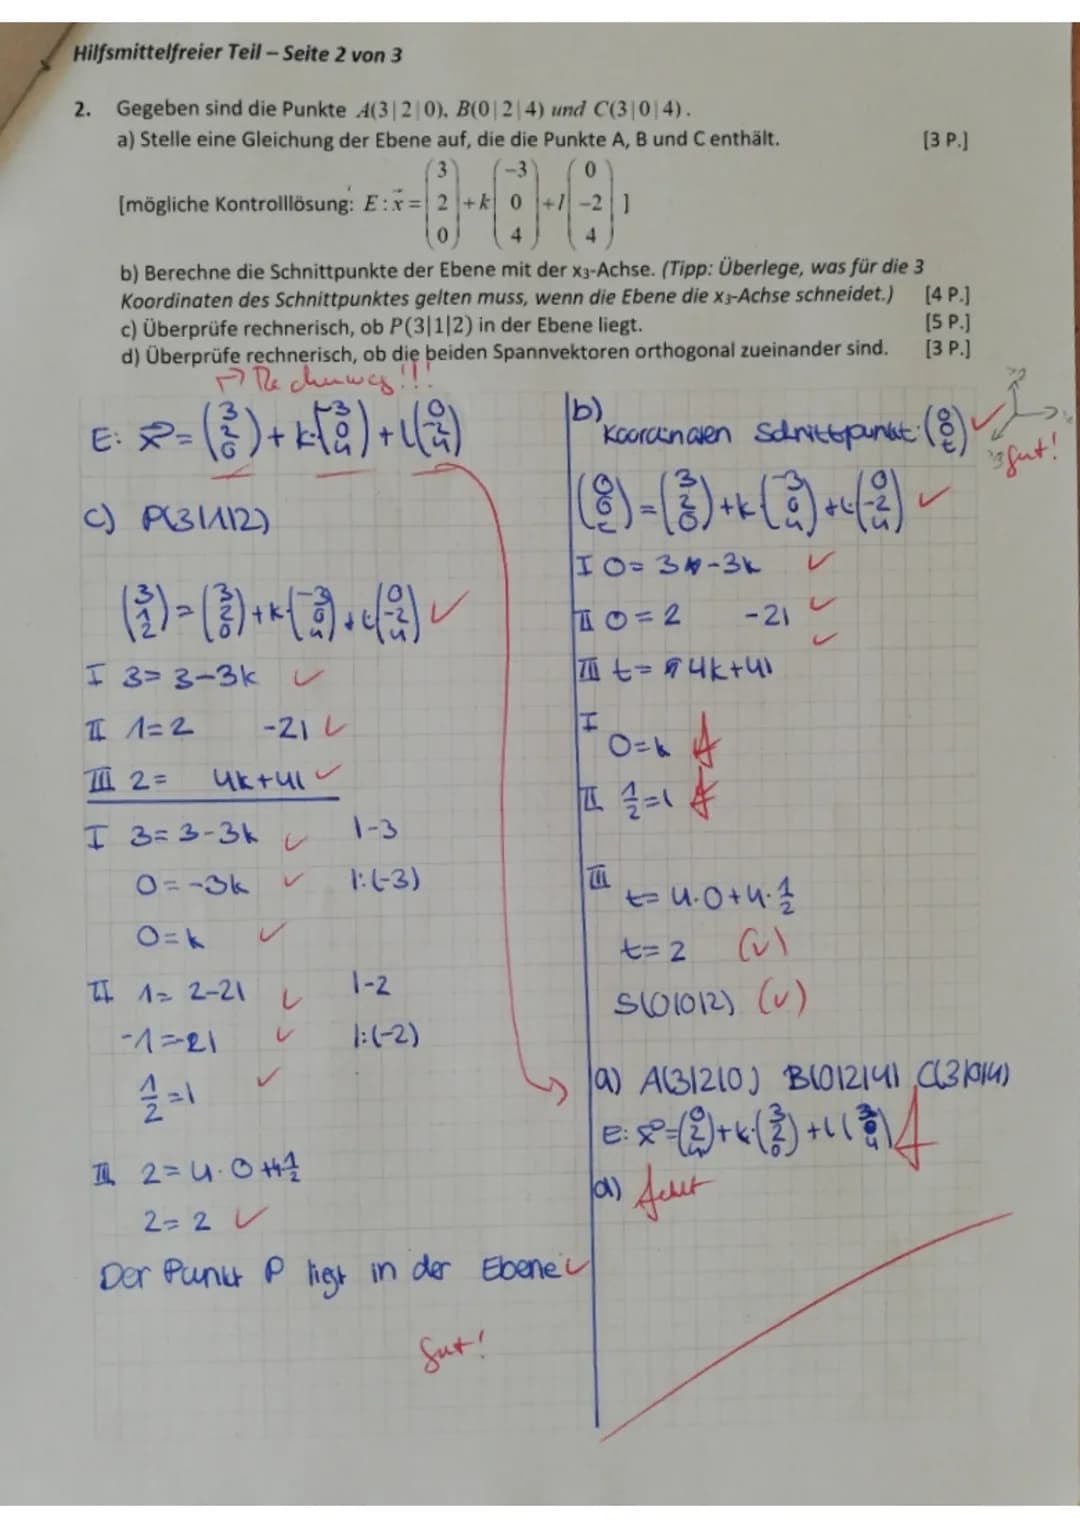 Hilfsmittelfreier Teil – Seite 2 von 3
2. Gegeben sind die Punkte A(3|2|0), B(0|2|4) und C(3|0|4).
a) Stelle eine Gleichung der Ebene auf, die die Punkte A, B und C enthält. [3 P.]
[mögliche Kontrolllösung: E: x⃗ = (3 2 0) + k (-3 0 4) + l (0 -2 4) ]
b) Berechne die Schnittpunkte der Ebene mit der x3-Achse. (Tipp: Überlege, was für die 3
Koordinaten des Schnittpunktes gelten muss, wenn die Ebene die x3-Achse schneidet.) [4 P.]
c) Überprüfe rechnerisch, ob P(3|1|2) in der Ebene liegt. [5 P.]
d) Überprüfe rechnerisch, ob die beiden Spannvektoren orthogonal zueinander sind. [3 P.]
Rechenweg!!!
E: x⃗ = (3 2 0) + k·(-3 0 4) + l (0 -2 4)
c) P(3|1|2)
(3 1 2) = (3 2 0) + k·(-3 0 4) + l (0 -2 4) ✓
I 3 = 3-3k ✓
II 1 = 2 -2l ✓
III 2 = 4k+4l ✓
I 3 = 3-3k ✓ |-3
0 = -3k ✓ |:(-3)
0=k ✓
II 1 = 2-2l ✓ |-2
-1 = -2l ✓ |:(-2)
1/2 = l ✓
III 2 = 4·0+4·1/2
2 = 2 ✓
Der Punkt P liegt in der Ebene ✓
Gut!
b)
Koordinaten Schnittpunkt: (0 0 t) ✓
Gut!
(0 0 t) = (3 2 0) + k (-3 0 4) + l (0 -2 4) ✓
I 0 = 3 -3k ✓
II 0 = 2 -2l ✓
III t = 4k+4l ✓
I
0=k f
II 1/2 = l f
III
t = 4·0+4·1/2
t = 2 (✓)
S(0|0|2) (✓)
a) A(3|2|0) B(0|2|4) C(3|0|4)
E: x⃗ = (0 2 4) + k·(3 2 0) + l (3 0 4) f
d) fehlt